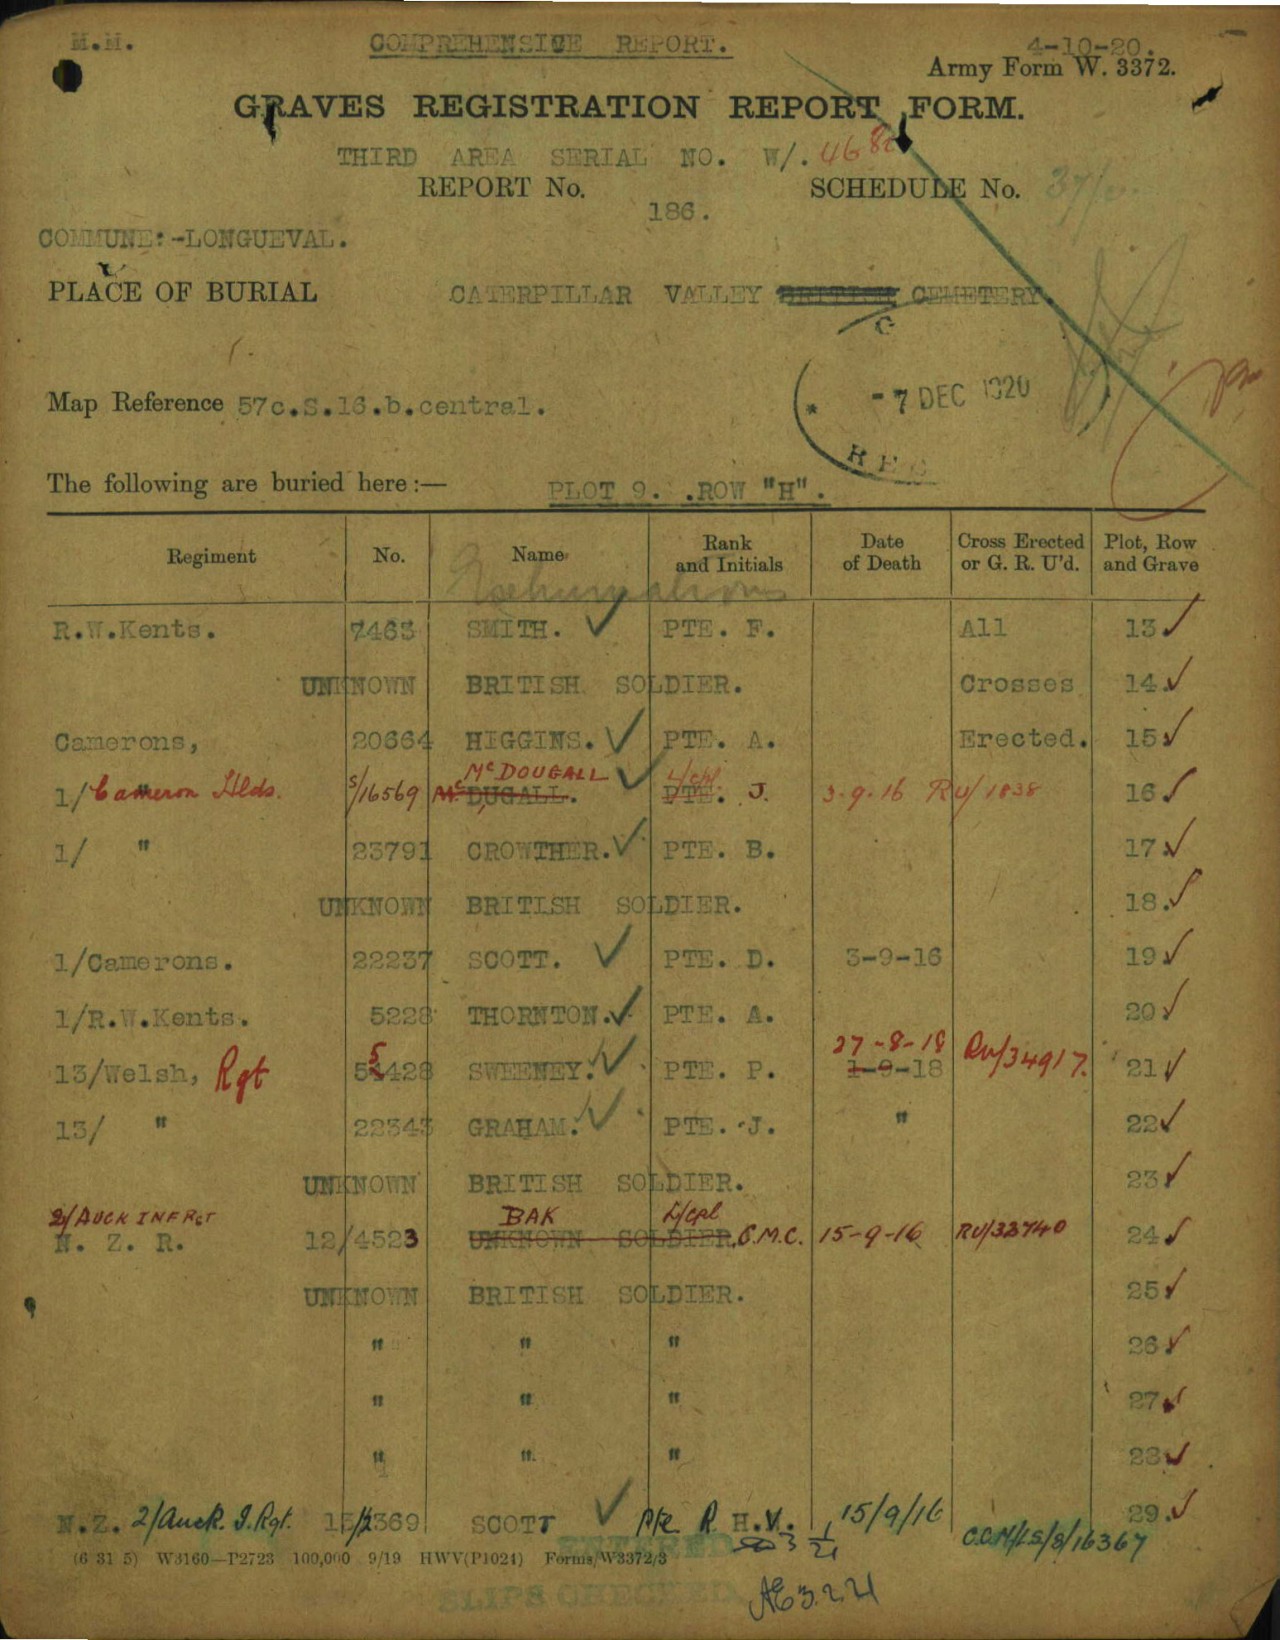 M.M. COMPREHENSIVE REPORT. 4-10-20.
Army Form W. 3372.
GRAVES REGISTRATION REPORT FORM.
THIRD AREA SERIAL NO. W/. 4682
REPORT No. 186. SCHEDULE No.
COMMUNE:-LONGUEVAL.
PLACE OF BURIAL CATERPILLAR VALLEY BRITISH CEMETERY.
G
Map Reference 57c.S.16.b.central.
* -7 DEC 1920
The following are buried here :— PLOT 9. .ROW "H".
Regiment No. Name Rank and Initials Date of Death Cross Erected or G. R. U'd. Plot, Row and Grave
Exhumations
R.W.Kents. 7463 SMITH. PTE. F. All 13
UNKNOWN BRITISH SOLDIER. Crosses 14
Camerons, 20664 HIGGINS. PTE. A. Erected. 15
McDOUGALL L/Cpl
1/Cameron Hlds. S/16569 McDUGALL. PTE. J. 3-9-16 RU/1838 16
1/ " 23791 CROWTHER. PTE. B. 17.
UNKNOWN BRITISH SOLDIER. 18.
1/Camerons. 22237 SCOTT. PTE. D. 3-9-16 19
1/R.W.Kents. 5228 THORNTON. PTE. A. 20
27-8-18
13/Welsh, Rgt 55428 SWEENEY. PTE. P. 1-9-18 RU/34917. 21
13/ " 22343 GRAHAM. PTE. J. " 22
UNKNOWN BRITISH SOLDIER. 23
2/AUCK INF RGT BAK L/Cpl
N. Z. R. 12/4523 UNKNOWN SOLDIER. C.M.C. 15-9-16 RU/33740 24
UNKNOWN BRITISH SOLDIER. 25
" " " 26
" " " 27
" " " 28
N.Z. 2/Auck. I.Rgt. 13/2369 SCOTT Pte. R. H.V. 15/9/16 29.
C.C.M/LS/8/16367
(6 31 5) W3160—P2723 100,000 9/19 HWV(P1024) Forms/W3372/3
ENTERED
SLIPS CHECKED.